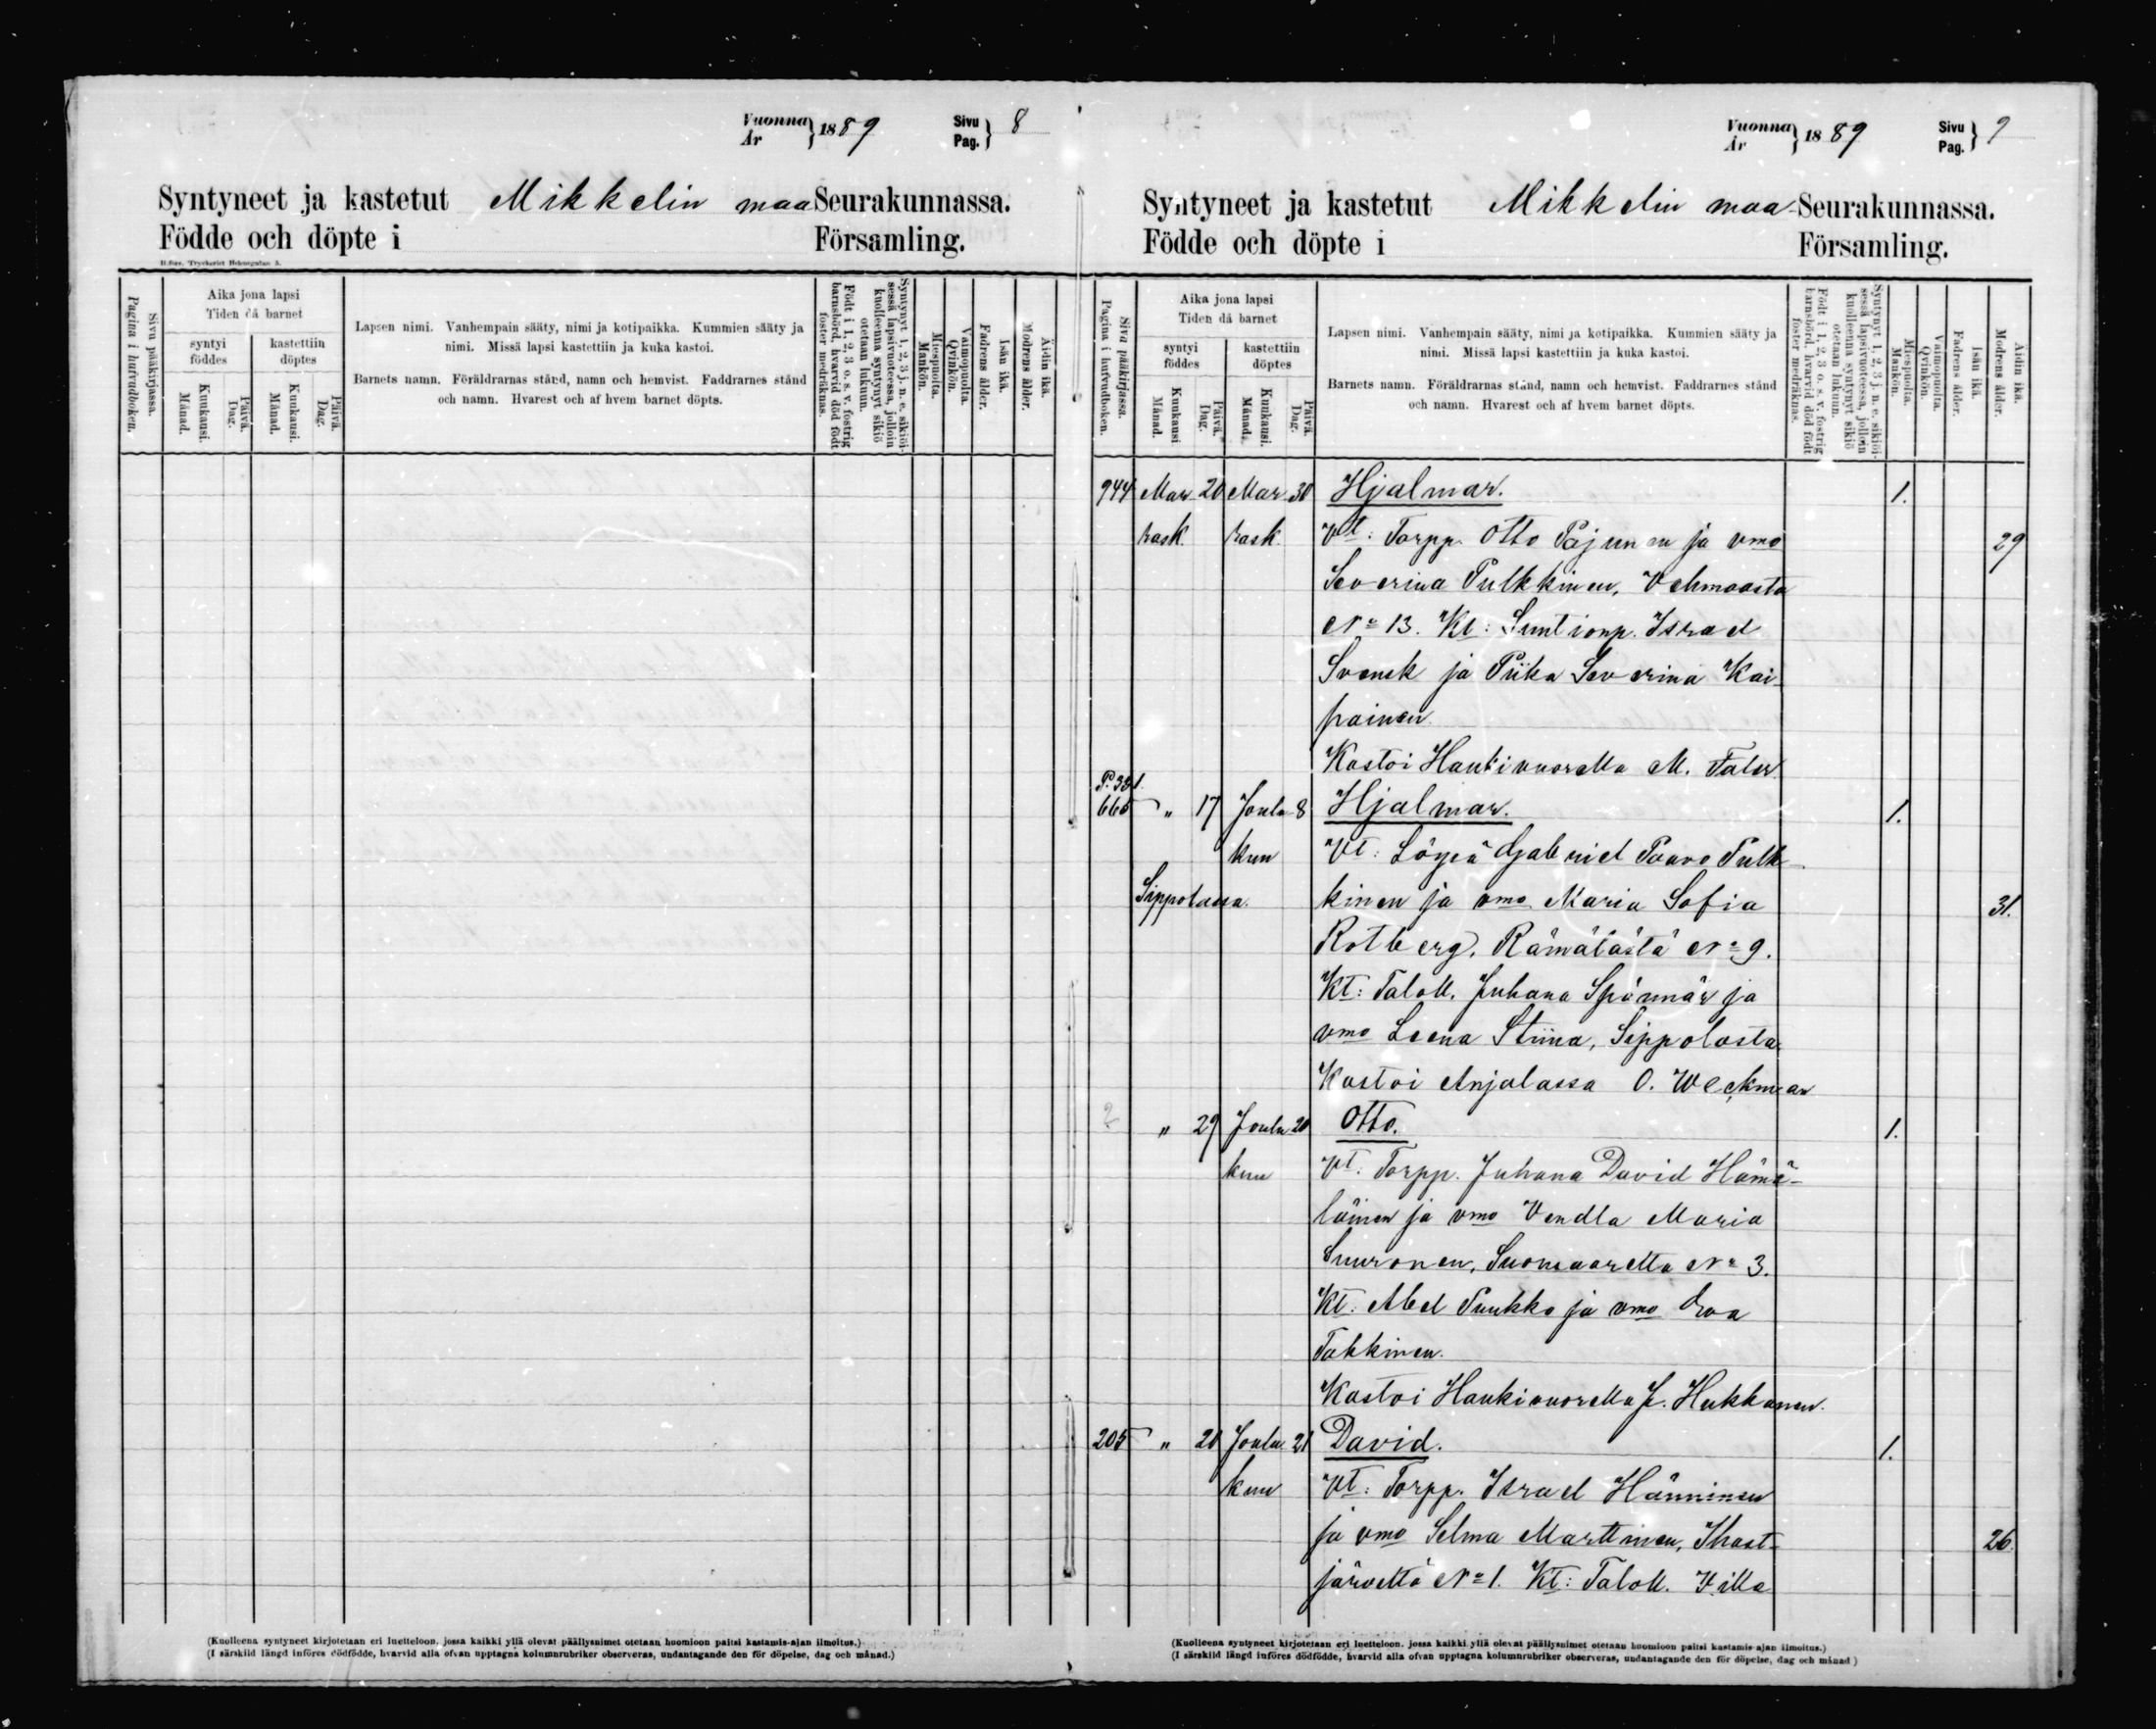 Vuonna
År } 1889 Sivu
Pag. } 8
Syntyneet ja kastetut Mikkelin maa Seurakunnassa.
Födde och döpte i Församling.
Sivu pääkirjassa.
Pagina i hufvudboken.
Aika jona lapsi
Tiden då barnet
syntyi
föddes
kastettiin
döptes
Kuukausi.
Månad.
Päivä.
Dag.
Kuukausi.
Månad.
Päivä.
Dag.
Lapsen nimi. Vanhempain sääty, nimi ja kotipaikka. Kummien sääty ja
nimi. Missä lapsi kastettiin ja kuka kastoi.
Barnets namn. Föräldrarnas stånd, namn och hemvist. Faddrarnes stånd
och namn. Hvarest och af hvem barnet döpts.
Syntynyt 1, 2, 3 j. n. e. sikiöj-
sessä lapsivuoteessa, jolloin
kuolleenna syntynyt sikiö
otetaan lukuun.
Födt i 1, 2, 3 o. s. v. fostrig
barnsbörd, hvarvid död födt
foster medräknas.
Miespuolta.
Mankön.
Vaimopuolta.
Qvinkön.
Isän ikä.
Fadrens ålder.
Äidin ikä.
Modrens ålder.
(Kuolleena syntyneet kirjotetaan eri luetteloon, jossa kaikki yllä olevat päällysnimet otetaan huomioon paitsi kastamis-ajan ilmoitus.)
(I särskild längd införes dödfödde, hvarvid alla ofvan upptagna kolumnrubriker observeras, undantagande den för döpelse, dag och månad.)
Vuonna
År } 1889 Sivu
Pag. } 9
Syntyneet ja kastetut Mikkelin maa-Seurakunnassa.
Födde och döpte i Församling.
Sivu pääkirjassa.
Pagina i hufvudboken.
Aika jona lapsi
Tiden då barnet
syntyi
föddes
kastettiin
döptes
Kuukausi
Månad.
Päivä.
Dag.
Kuukausi.
Månad.
Päivä.
Dag.
Lapsen nimi. Vanhempain sääty, nimi ja kotipaikka. Kummien sääty ja
nimi. Missä lapsi kastettiin ja kuka kastoi.
Barnets namn. Föräldrarnas stånd, namn och hemvist. Faddrarnes stånd
och namn. Hvarest och af hvem barnet döpts.
Syntynyt 1, 2, 3 j. n. e. sikiöj-
sessä lapsivuoteessa, jolloin
kuolleenna syntynyt sikiö
otetaan lukuun.
Födt i 1, 2, 3 o. s. v. fostrig
barnsbörd, hvarvid död födt
foster medräknas.
Miespuolta.
Mankön.
Vaimopuolta.
Qvinkön.
Isän ikä.
Fadrens ålder.
Äidin ikä.
Modrens ålder.
944 Mar- 20 Mar- 30 Hjalmar. 1.
rask. rask. Vt: Torpp. Otto Pajunen ja vmo 29
Severina Pulkkinen, Vehmaasta
No 13. Kt: Suntionp. Israel
Svensk ja Piika Severina Kai-
painen.
Kastoi Haukivuorella M.
P. 331.
665 " 17 Joulu- 8 Hjalmar. 1.
kuu Vt: Löysä Gabriel Paavo Pulk-
Sippolassa. kinen ja vmo Maria Sofia 31.
Rotberg, Rämälästä No 9.
Kt: Taloll. Juhana Spännär ja
vmo Leena Stiina, Sippolasta.
Kastoi Anjalassa O. Weckman
2 " 29 Joulu 20 Otto. 1.
kuu Vt: Torpp. Juhana David Hämä-
läinen ja vmo Vendla Maria
Suuronen, No 3.
Kt: Abel Puukko ja vmo Eva
Takkinen.
Kastoi Haukivuorella J. Hukkanen.
205 " 20 Joulu- 21 David. 1.
kuu Vt: Torpp. Israel Hänninen
ja vmo Selma Marttinen, Ihast- 26.
järveltä No 1. Kt: Taloll. Villa
(Kuolleena syntyneet kirjotetaan eri luetteloon, jossa kaikki yllä olevat päällysnimet otetaan huomioon paitsi kastamis-ajan ilmoitus.)
(I särskild längd införes dödfödde, hvarvid alla ofvan upptagna kolumnrubriker observeras, undantagande den för döpelse, dag och månad)